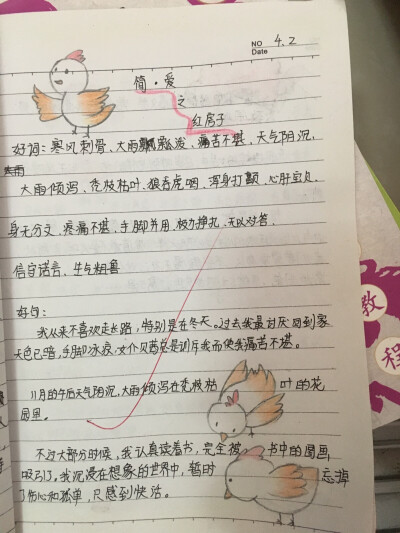 NO
Date 4.2
简·爱
之
红房子
好词:寒风刺骨、大雨飘泼、痛苦不堪、天气阴沉、
大雨倾泻、秃枝枯叶、狼吞虎咽、浑身打颤、心肝宝贝、
身无分文、疼痛不堪、手脚并用、极力挣扎、无以对答、
信守诺言、生与粗鲁
好句:
我从来不喜欢走长路,特别是在冬天。过去我最讨厌回到家
天色已暗,手脚冰凉,女仆贝茜总是训斥我而使我痛苦不堪。
11月的午后天气阴沉,大雨倾泻在秃枝枯叶的花
园里。
不过大部分时候,我认真读着书,完全被书中的图画
吸引了。我沉浸在想象的世界中,暂时忘掉
了伤心和孤单,只感到快活。
教
程